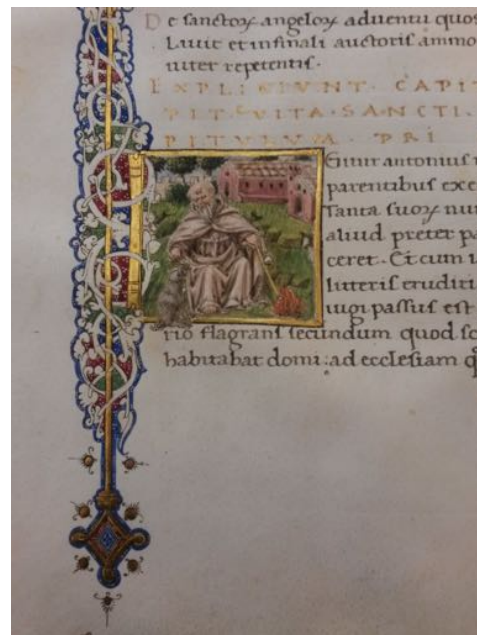 De sanctoꝝ angeloꝝ aduentu quos
Liuit et in finali auctoris ammo
niter repetentis.
EXPLICIUNT. CAPI
PIT. VITA. SANCTI.
PITULUM. PRI
Gitur antonius
parentibus exe
Tanta suoꝝ nu
aliud preter pa
ceret. Et cum i
litteris eruditi
iugi passus est
rio flagrans secundum quod sc
habitabat domi: ad ecclesiam q